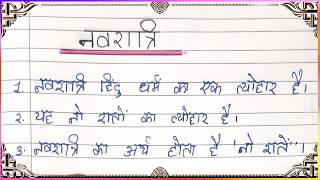 नवरात्रि
1. नवरात्रि हिंदु धर्म का एक त्योहार है।
2. यह नो रातों का त्योहार है।
3. नवरात्रि का अर्थ होता है 'नो रातें'।